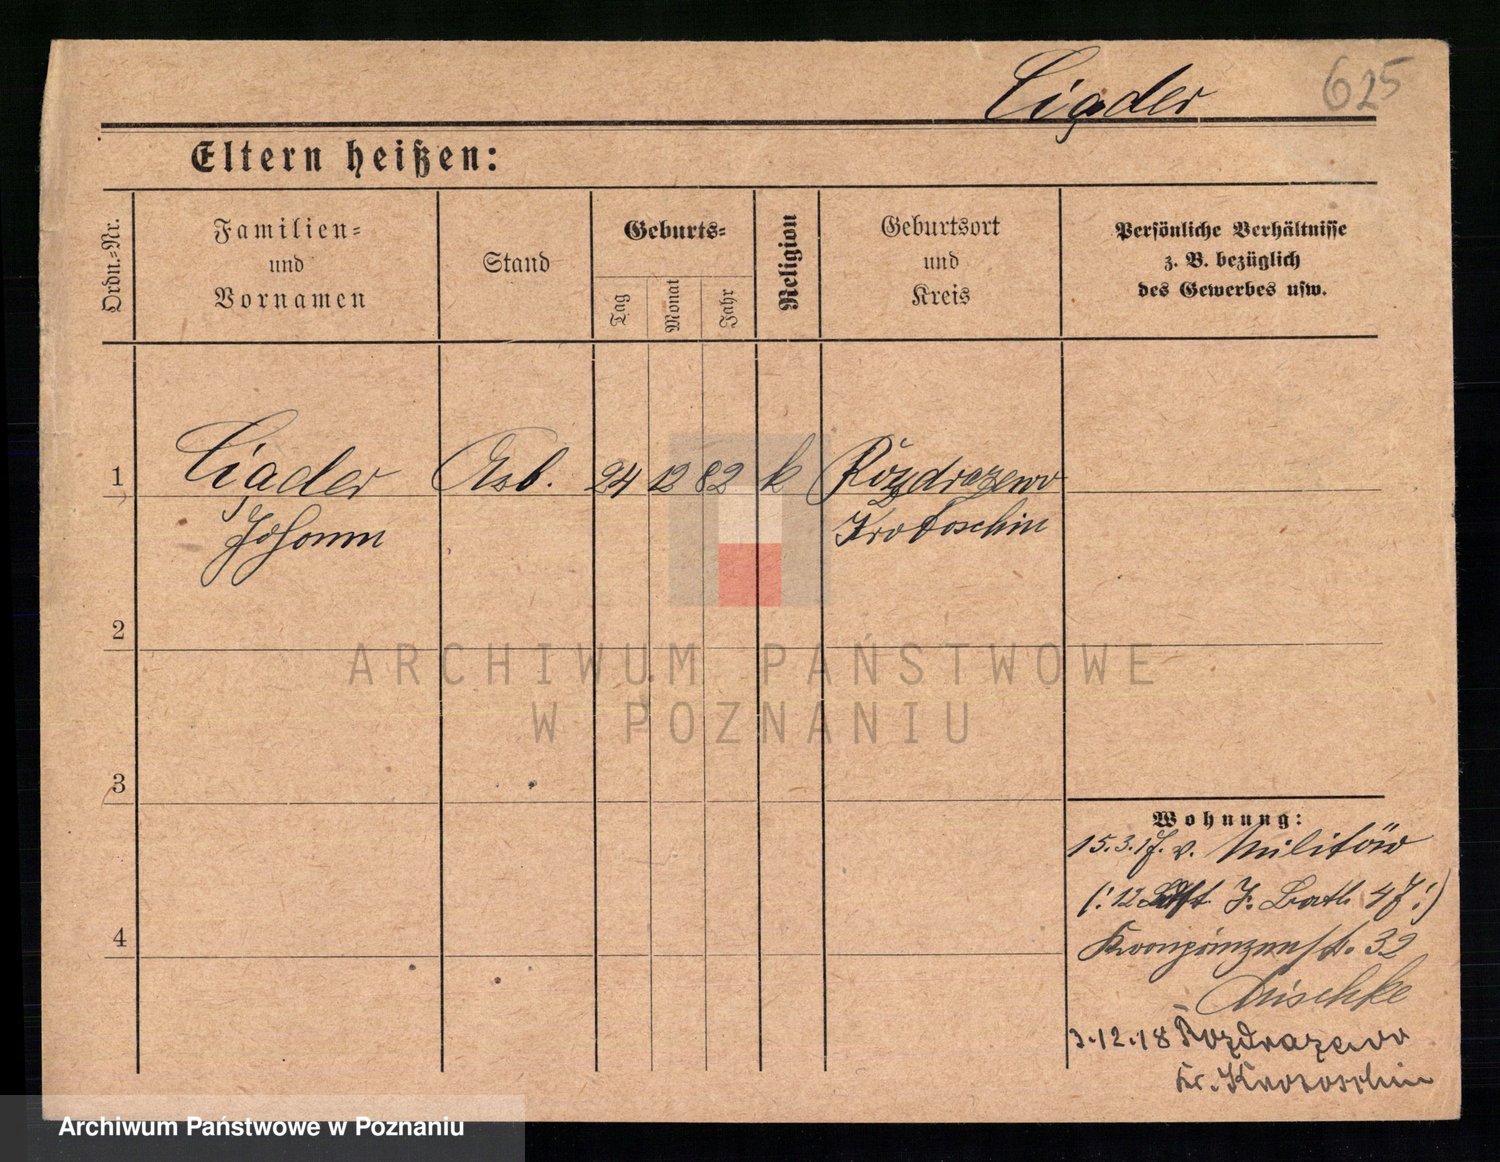 Ciąder 625
Eltern heißen:
Ordn.-Nr.
Familien=
und
Vornamen
Stand
Geburts=
Tag
Monat
Jahr
Religion
Geburtsort
und
Kreis
Persönliche Verhältnisse
z. B. bezüglich
des Gewerbes usw.
1 Ciąder Arb. 24 12 82 k Rozdrazewo
Johann Krotoschin
2
3
4
Wohnung:
15.3.17. v. Militär
(: 12 J. Batl. 47 :)
Kronprinzenstr. 32
Mischke
3.12.18 Rozdrazewo
Kr. Krotoschin
ARCHIWUM PAŃSTWOWE
W POZNANIU
Archiwum Państwowe w Poznaniu